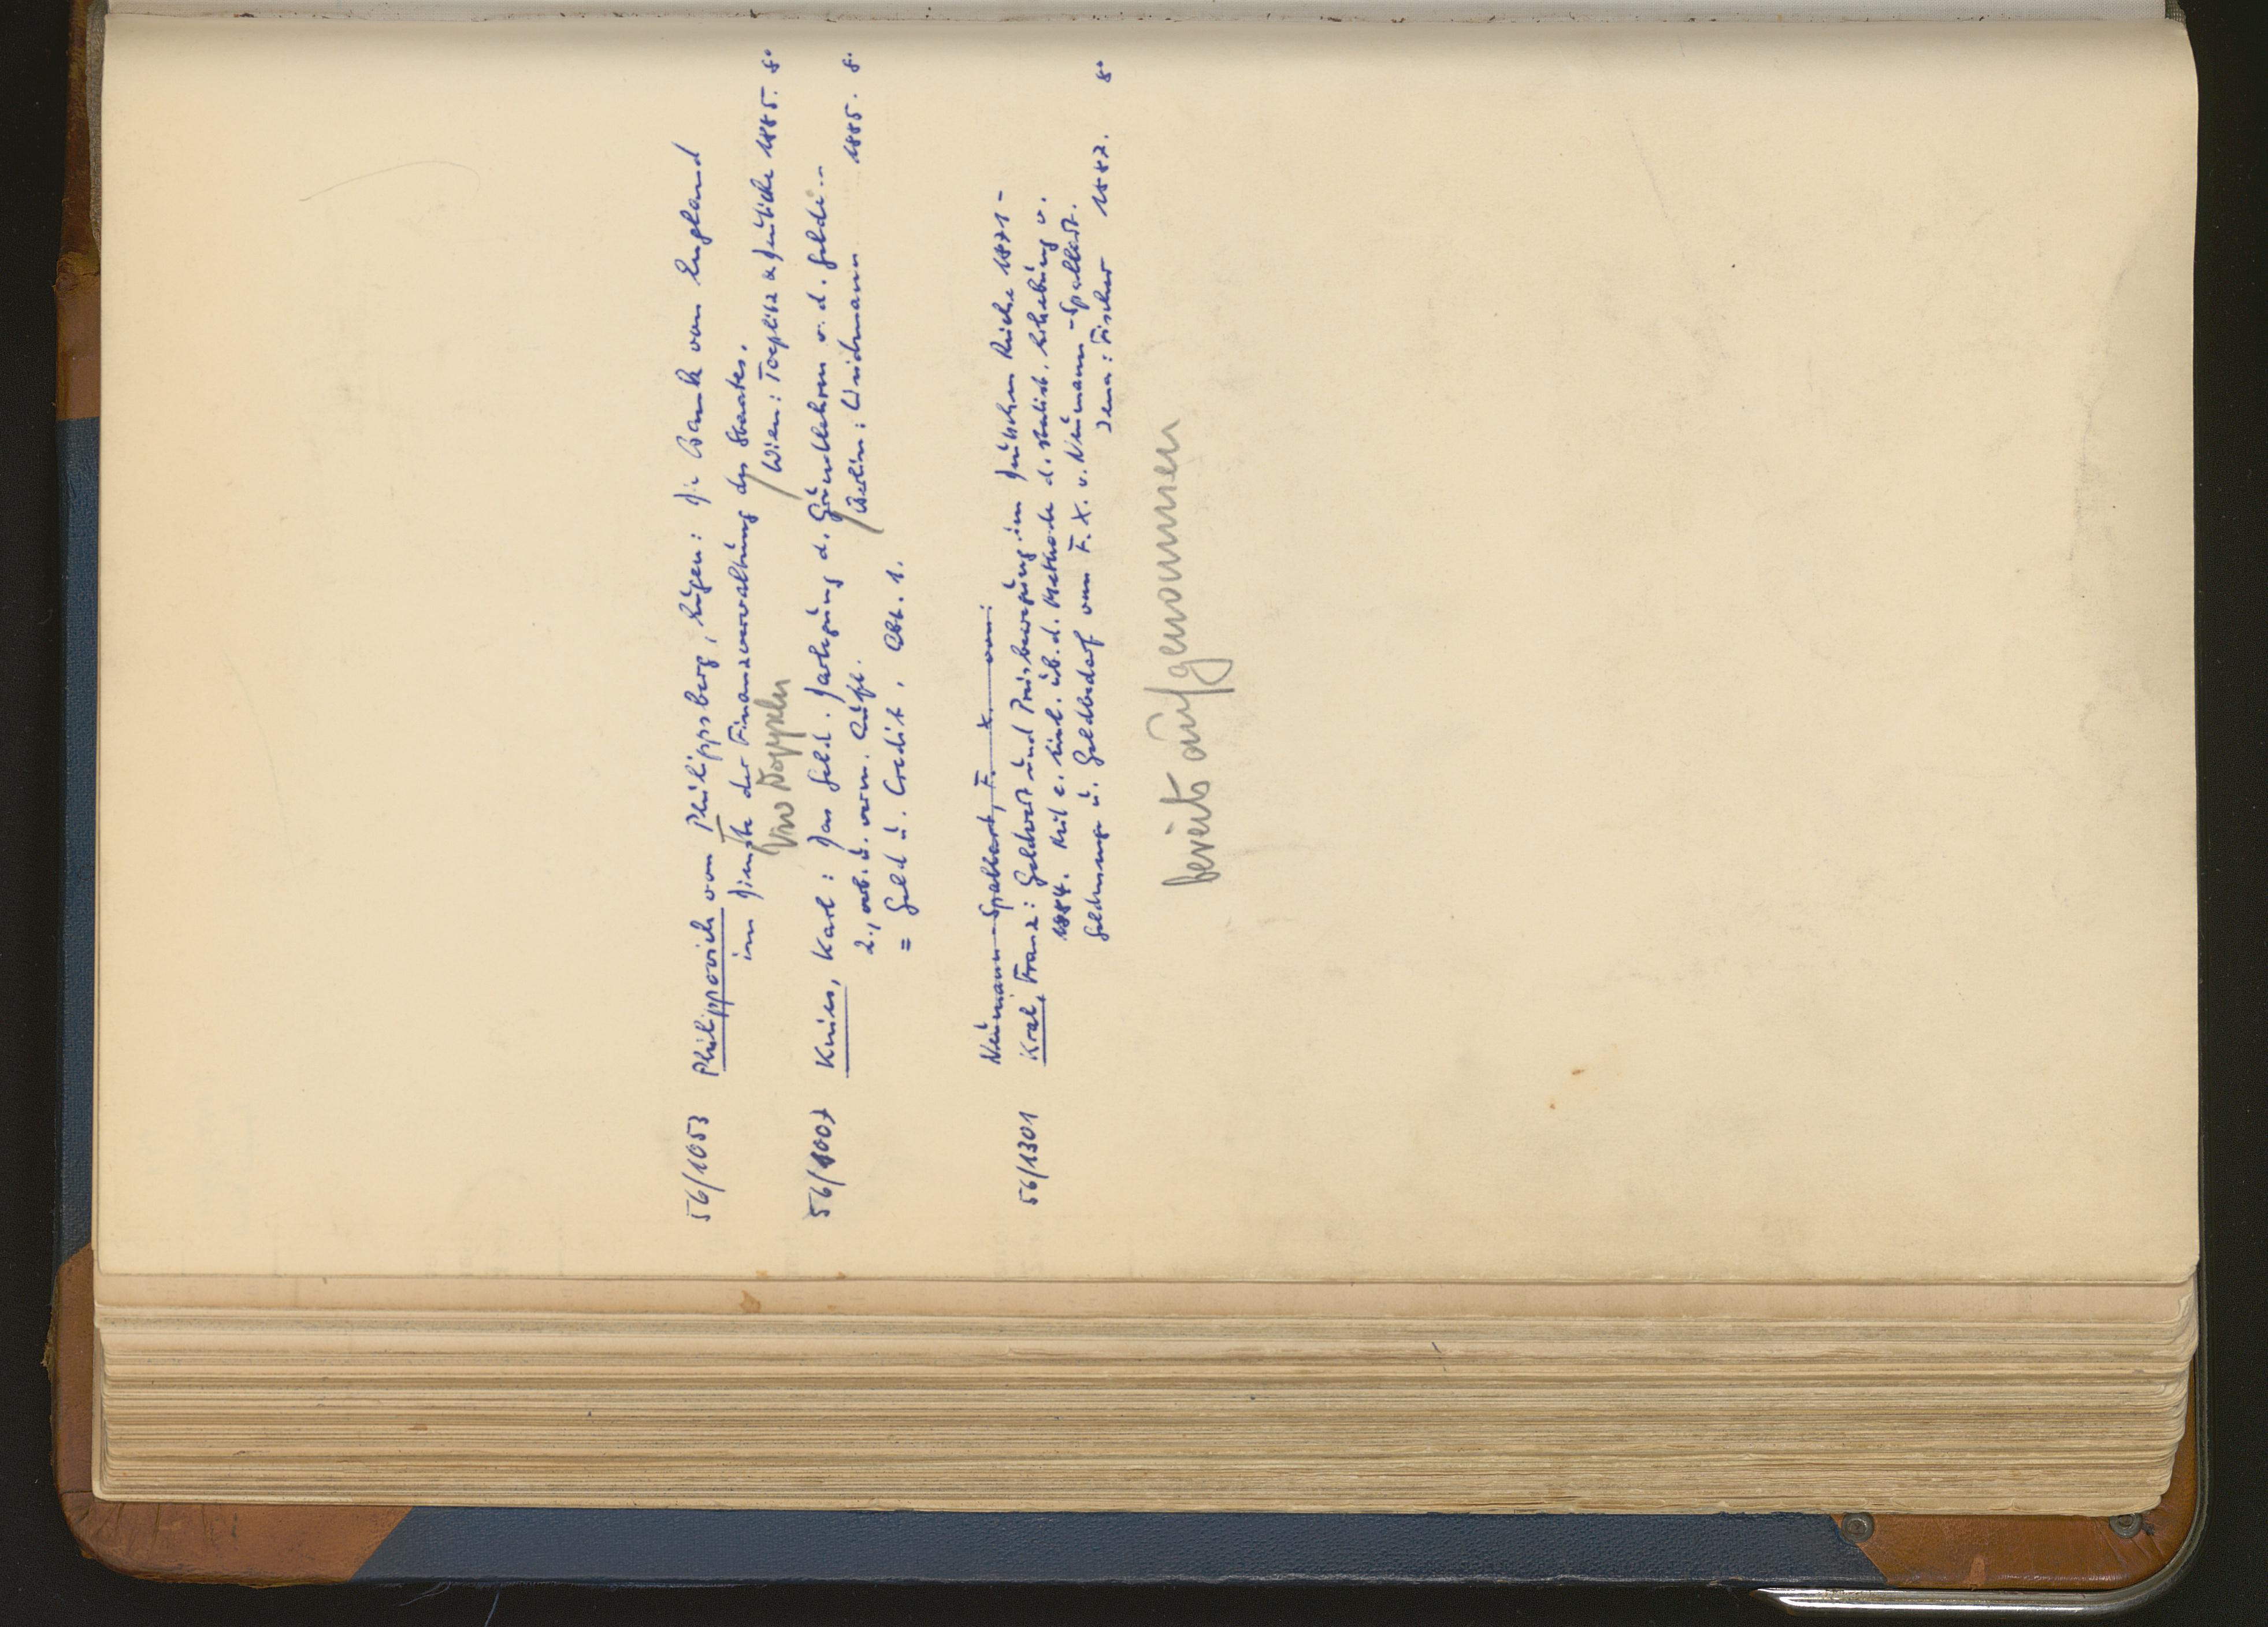 56/1053 Philippovich von Philippsberg, Eugen: Die Bank von England
im Dienste der Finanzverwaltung des Staates.
Wien: Toeplitz & Deuticke 1885. 8°
Doppeln
56/1007 Knies, Karl: Das Geld. Darlegung d. Grundlehren v. d. Gelde...
2., verb. u. verm. Aufl. Berlin: Weidmann 1885. 8°
= Geld u. Credit, Abt. 1.
Neumann-Spallart, F. X. von:
56/1301 Kral, Franz: Geldwert und Preisbewegung im Deutschen Reiche 1871-
1884. Mit e. Einl. üb. d. Methode d. statist. Erhebung v.
Geldmenge u. Geldbedarf von F. X. v. Neumann-Spallart.
Jena: Fischer 1887. 8°
bereits aufgenommen